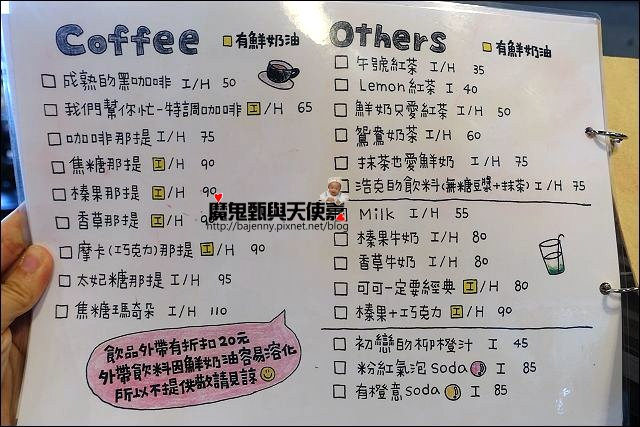 Coffee
有鮮奶油
成熟的黑咖啡 I/H 50
我們幫你忙-特調咖啡 I/H 65
咖啡那提 I/H 75
焦糖那提 I/H 90
榛果那提 I/H 90
香草那提 I/H 90
摩卡(巧克力)那提 I/H 90
太妃糖那提 I/H 95
焦糖瑪奇朵 I/H 110
飲品外帶有折扣20元
外帶飲料因鮮奶油容易溶化
所以不提供敬請見諒
Others
有鮮奶油
午號紅茶 I/H 35
Lemon紅茶 I 40
鮮奶只愛紅茶 I/H 50
鴛鴦奶茶 I/H 60
抹茶也愛鮮奶 I/H 75
浩克的飲料(無糖豆漿+抹茶) I/H 75
Milk I/H 55
榛果牛奶 I/H 80
香草牛奶 I/H 80
可可一定要經典 I/H 80
榛果+巧克力 I/H 90
初戀的柳橙汁 I 45
粉紅氣泡soda I 85
有橙意soda I 85
魔鬼甄與天使嘉
http://bajenny.pixnet.net/blog